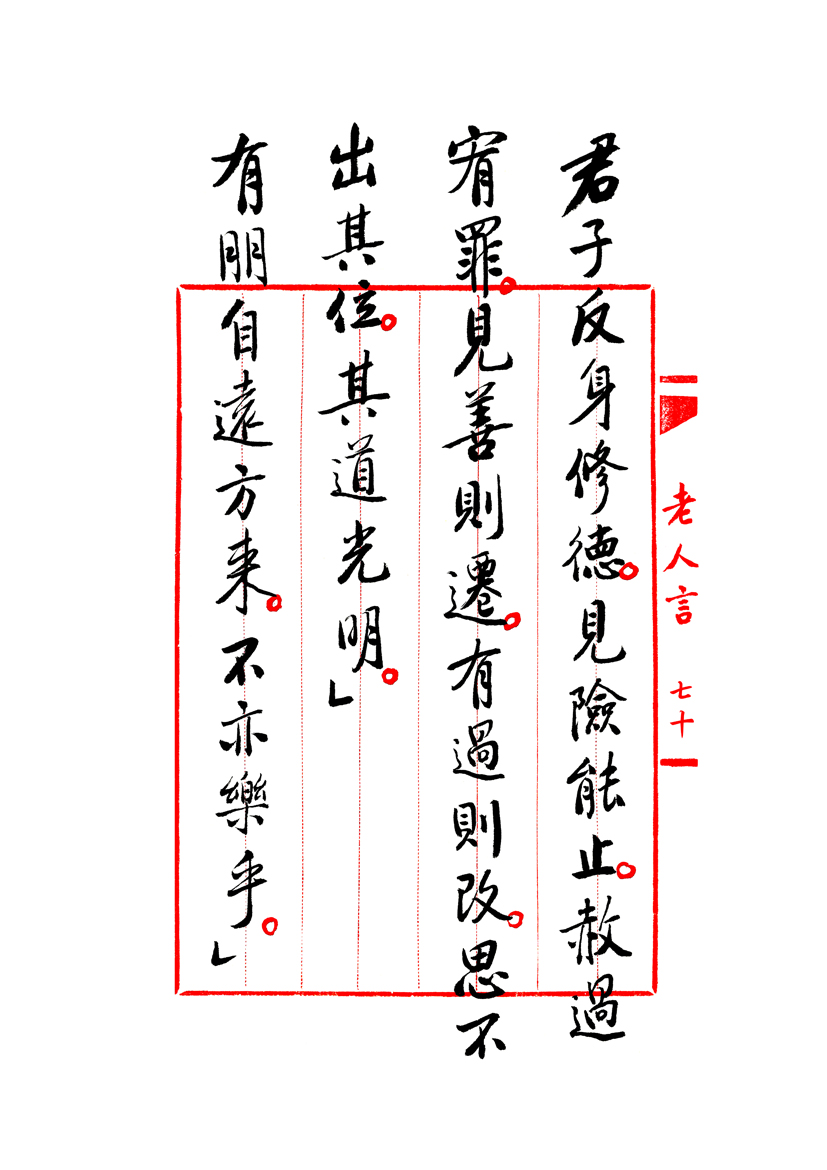 君子反身修德。見險能止。赦過
宥罪。見善則遷。有過則改。思不
出其位。其道光明。」
有朋自遠方来。不亦樂乎。」
老人言
七十